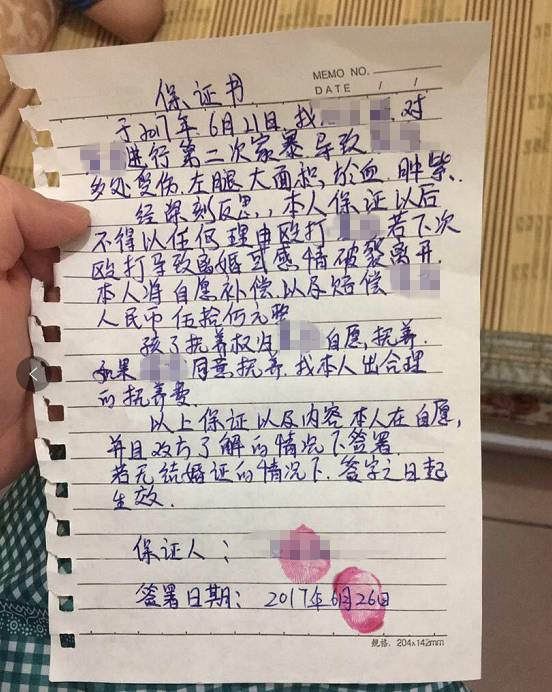 MEMO NO.
DATE / /
保证书
于2017年6月21日,我 对
进行第二次家暴,导致
多处受伤,左腿大面积,於血,肿紫.
经深刻反思,,本人保证以后
不得以任何理由殴打 若下次
殴打导致离婚或感情破裂离开.
本人将自愿补偿.以及赔偿
人民币伍拾 元整
孩子抚养权归 自愿,抚养.
如果 同意抚养.找本人出合理
的抚养费.
以上保证以及内容本人在自愿,
并且双方了解的情况下签署
若无结婚证的情况下.签字之日起
生效.
保证人:
签署日期: 2017年6月26日
规格: 204×142mm